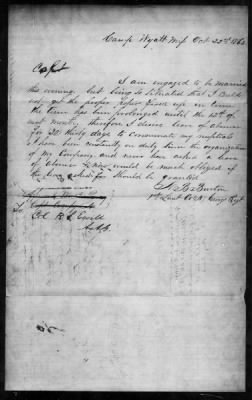 Camp Wyatt Miss Oct 23rd 186
Capt
I am engaged to be married
this evening. but being so situated that I could
not get the proper papers fixed up in time
the time has been prolonged until the 12th of
next month, therefore I desire leave of absence
for 30 thirty days to consumate my nuptials
I have been constantly on duty since the organization
of my Company and never have asked a leave
of absence & would be much obliged if
the leave asked for should be granted
Burton
1st Lieut Co
To
Col R S Ewell
A.A.G.